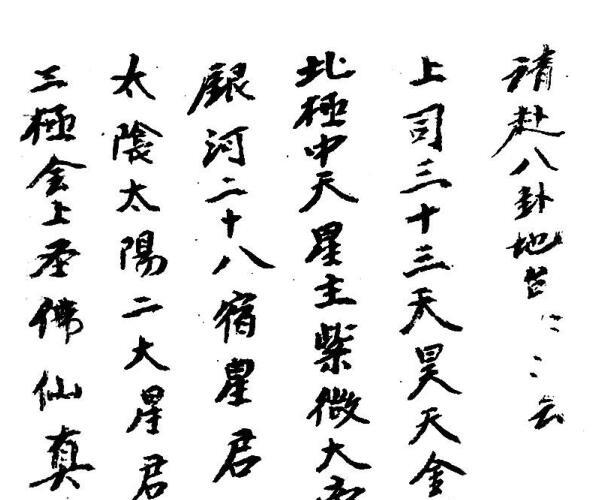 請赴八卦地云
上司三十三天昊天金
北極中天星主紫微大
銀河二十八宿星君
太陰太陽二大星君
三極会上圣佛仙真